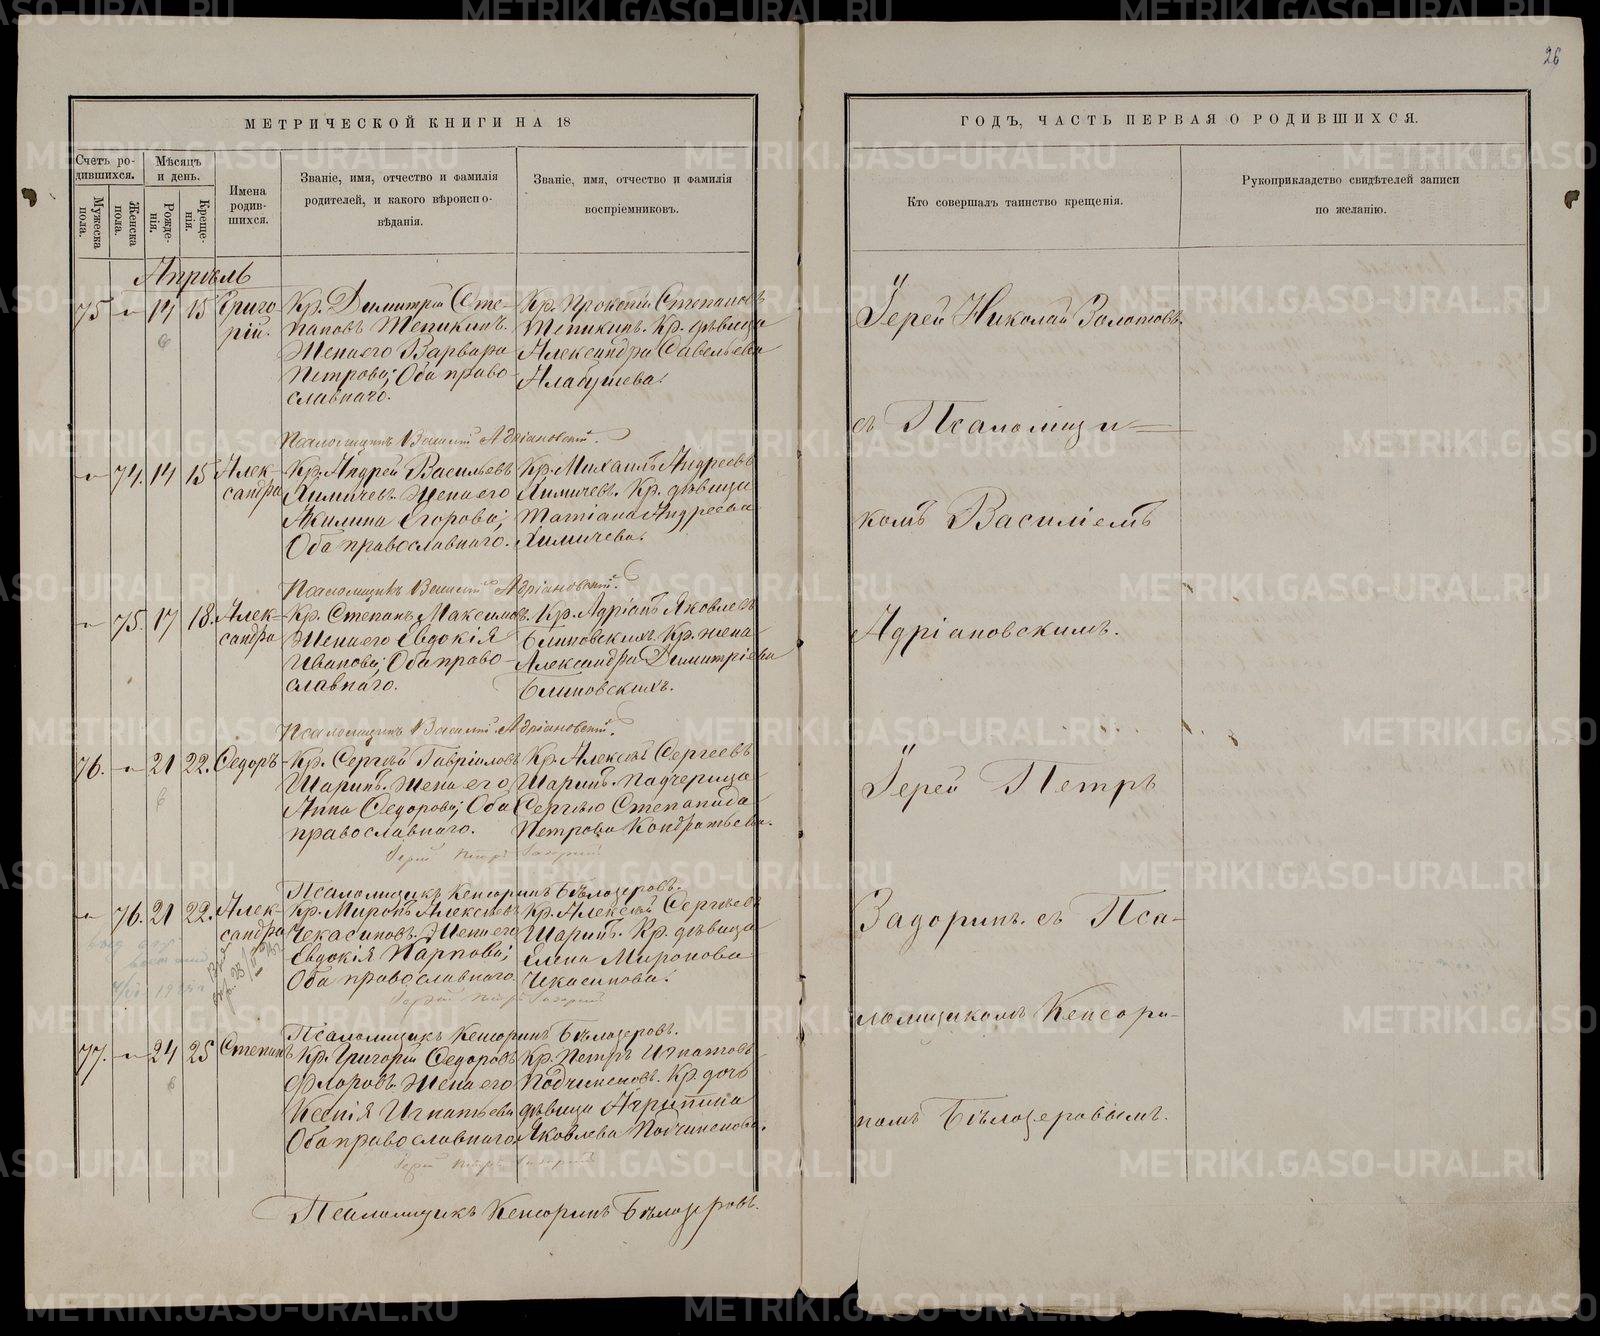 26
МЕТРИЧЕСКОЙ КНИГИ НА 18
ГОДЪ, ЧАСТЬ ПЕРВАЯ О РОДИВШИХСЯ.
Счетъ ро-
дившихся.
Мужеска
пола.
Женска
пола.
Мѣсяцъ
и день.
Рожде-
нія.
Креще-
нія.
Имена
родив-
шихся.
Званіе, имя, отчество и фамилія
родителей, и какого вѣроиспо-
вѣданія.
Званіе, имя, отчество и фамилія
воспріемниковъ.
Кто совершалъ таинство крещенія.
Рукоприкладство свидѣтелей записи
по желанію.
Апрѣль
75 14 15 Григо-
рій.
Кр. Димитрій Сте-
пановъ Шепикинъ.
Жена его Варвара
Петрова; Оба право-
славнаго.
Кр. Прокопій Степановъ
Шепикинъ. Кр. дѣвица
Александра Савельева
Псаломщикъ Василій Адріановскій.
74. 14 15 Алек-
сандра
Кр. Андрей Васильевъ
Химичевъ. Жена его
Акилина Егорова;
Оба православнаго.
Кр. Михаилъ Андреевъ
Химичевъ. Кр. дѣвица
Татіана Андреева
Химичева.
Псаломщикъ Василій Адріановскій.
75. 17 18. Алек-
сандра
Кр. Степанъ Максимовъ.
Жена его Евдокія
Иванова; Оба право-
славнаго.
Кр. Адріанъ Яковлевъ
Блиновскихъ. Кр. жена
Александра Димитріева
Блиновскихъ.
Псаломщикъ Василій Адріановскій.
76. 21 22. Ѳедоръ
Кр. Сергѣй Гавріиловъ
Шаринъ. Жена его
Анна Ѳедорова; Оба
православнаго.
Кр. Алексѣй Сергеевъ
Шаринъ. Падчерица
Сергѣю Степанида
Петрова Кондратьева.
Іерей Петръ Задоринъ
Псаломщикъ Кенсоринъ Бѣлозеровъ.
76. 21 22. Алек-
сандра
Кр. Миронъ Алексѣевъ
Чекасиновъ. Жена его
Евдокія Карпова;
Оба православнаго
Кр. Алексѣй Сергѣевъ
Шаринъ. Кр. дѣвица
Елена Миронова
Чекасинова.
Іерей Петръ Задоринъ
Псаломщикъ Кенсоринъ Бѣлозеровъ.
77. 24 25 Степанъ
Кр. Григорій Ѳедоровъ
Флоровъ. Жена его
Ксенія Игнатьева
Оба православнаго
Кр. Петръ Игнатовъ
Подчиненовъ. Кр. дочь
дѣвица Агрипина
Яковлева Подчиненова.
Іерей Петръ Задоринъ
Псаломщикъ Кенсоринъ Бѣлозеровъ.
Іерей Николай Золотовъ
съ Псаломщи-
комъ Василіемъ
Адріановскимъ.
Іерей Петръ
Задоринъ. съ Пса-
ломщикомъ Кенсори-
номъ Бѣлозеровымъ.
METRIKI.GASO-URAL.RU